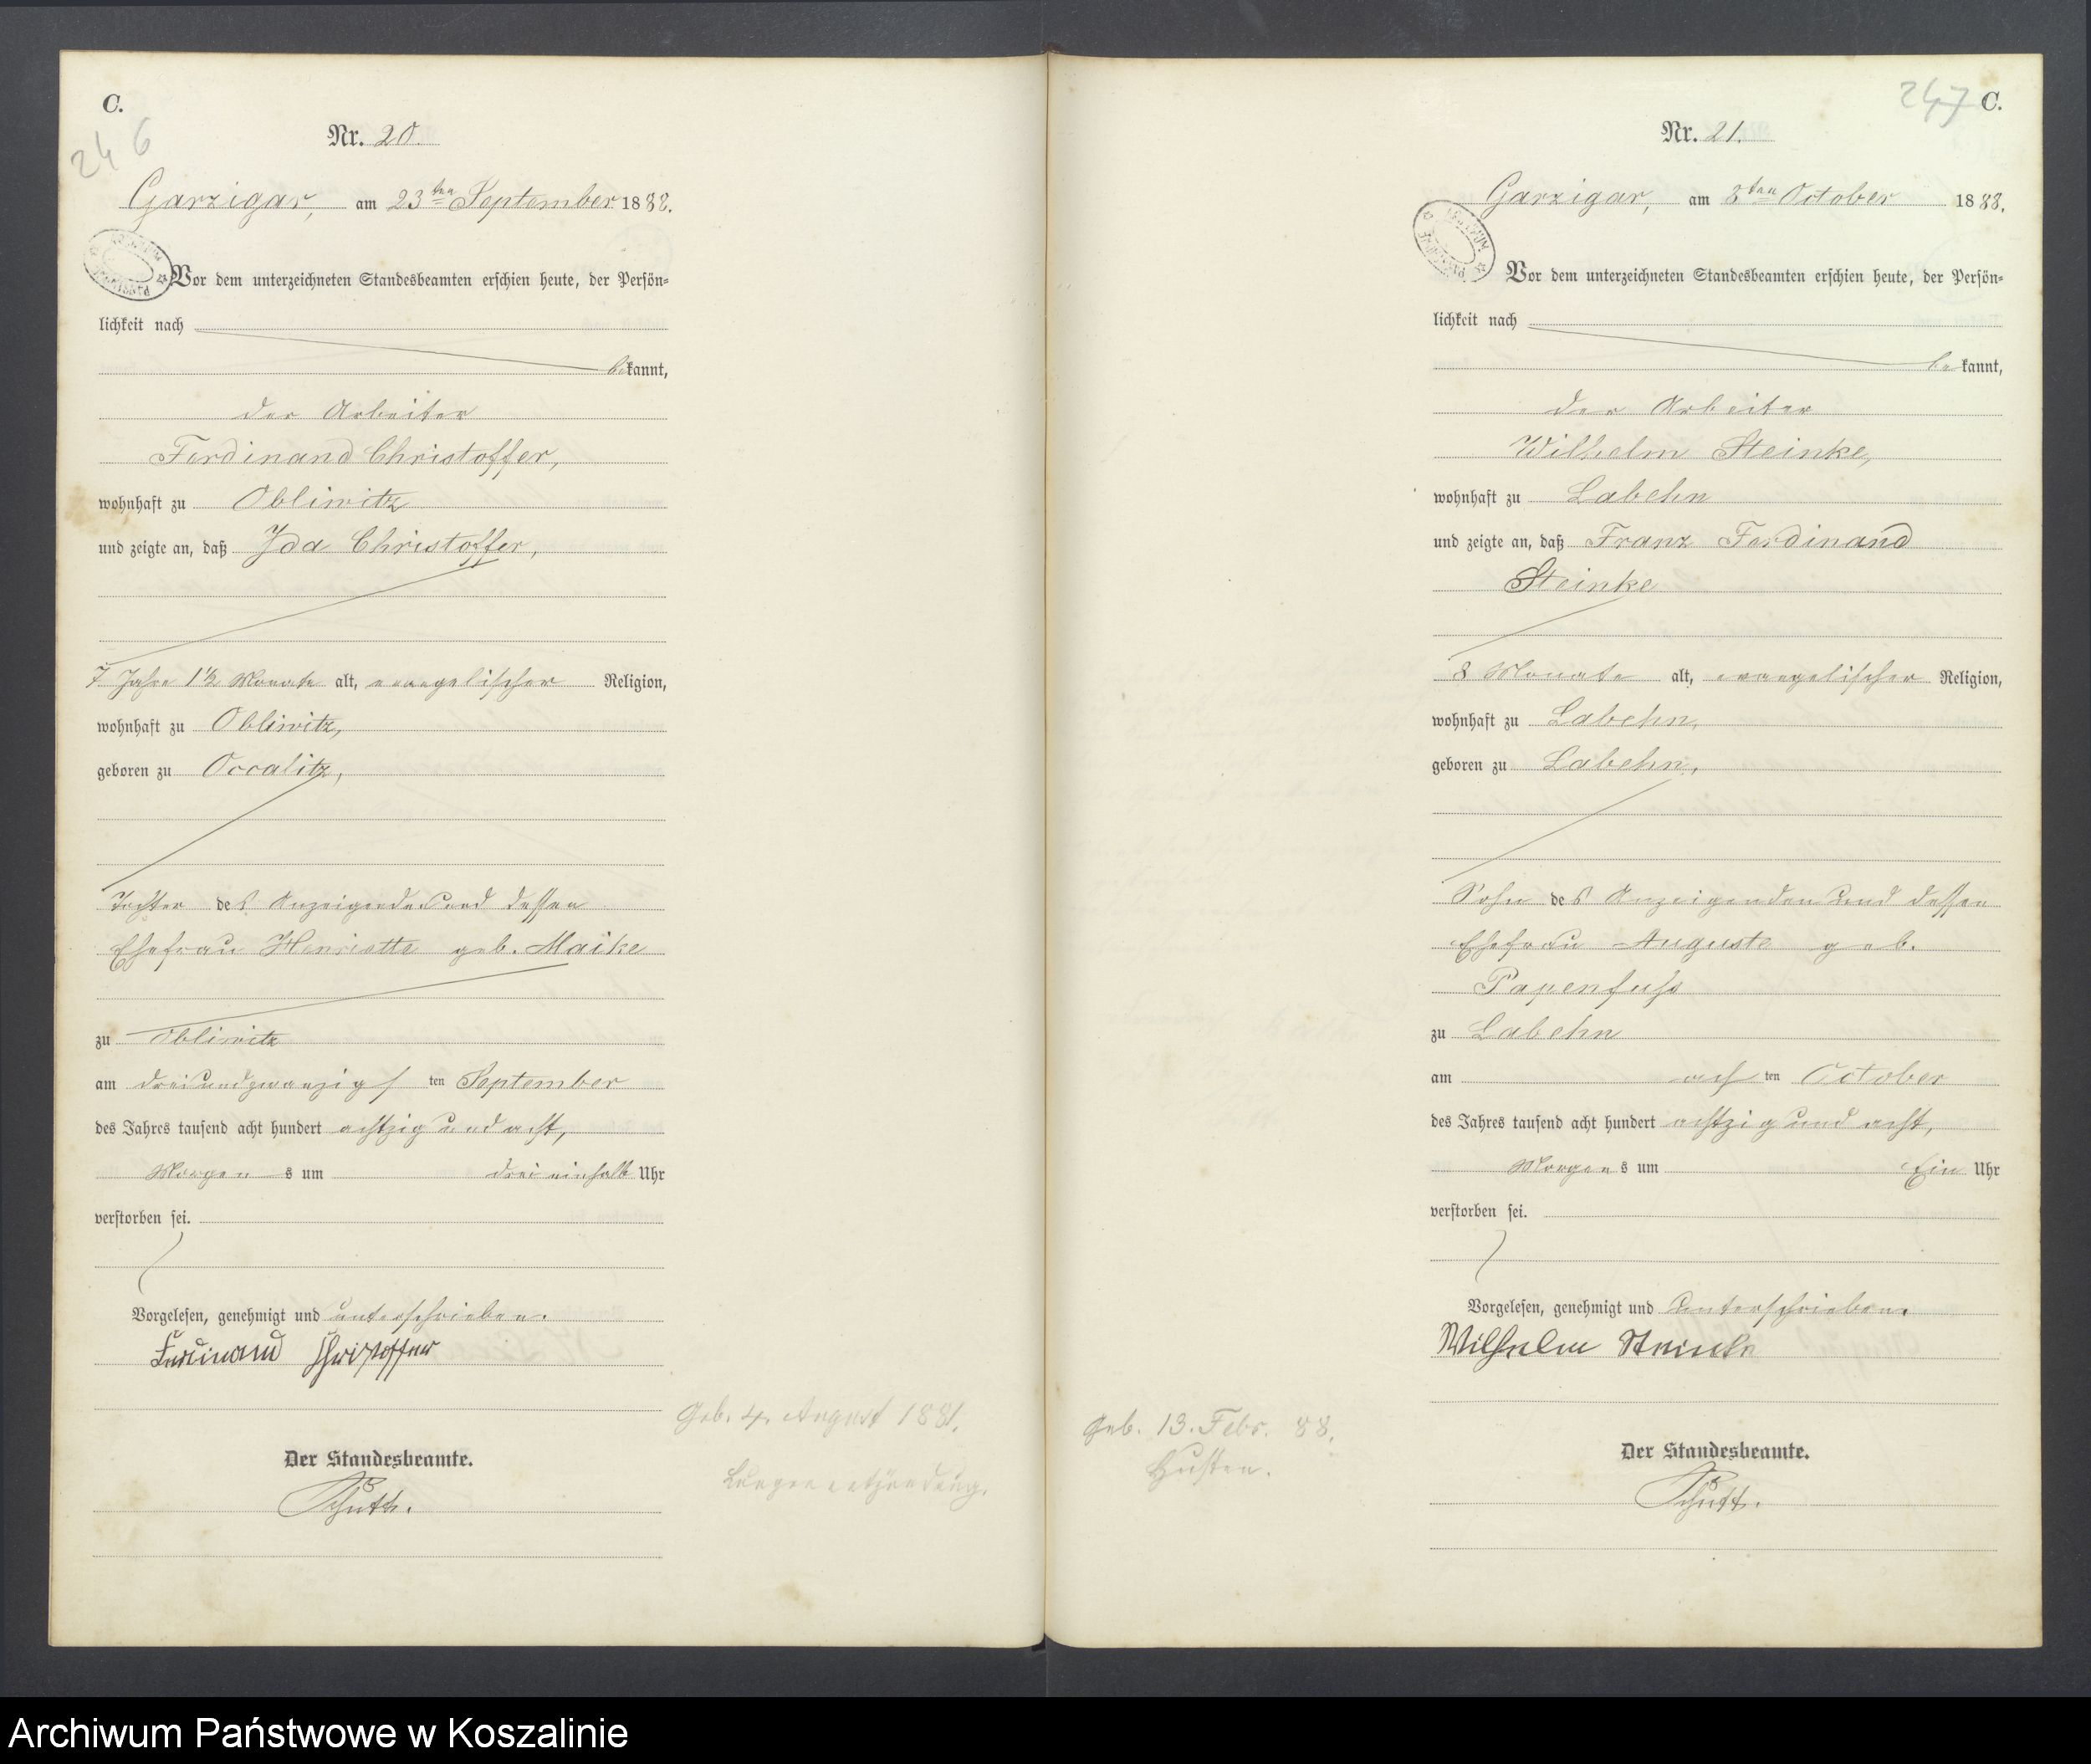 C.
246
Nr. 20.
Garzigar, am 23ten September 1888.
Vor dem unterzeichneten Standesbeamten erschien heute, der Persön-
lichkeit nach
bekannt,
der Arbeiter
Ferdinand Christoffer,
wohnhaft zu Obliwitz
und zeigte an, daß Ida Christoffer,
7 Jahre 1½ Monate alt, evangelischer Religion,
wohnhaft zu Obliwitz,
geboren zu Occalitz,
Tochter des Anzeigenden und dessen
Ehefrau Henriette geb. Maike
zu Obliwitz
am dreiundzwanzigs ten September
des Jahres tausend acht hundert achtzig und acht,
Morgen s um drei einhalb Uhr
verstorben sei.
Vorgelesen, genehmigt und unterschrieben.
Ferdinand Christoffer
Geb. 4. August 1881.
Lungenentzündung.
Der Standesbeamte.
247 C.
Nr. 21.
Garzigar, am 8ten October 1888.
Vor dem unterzeichneten Standesbeamten erschien heute, der Persön-
lichkeit nach
bekannt,
der Arbeiter
Wilhelm Steinke,
wohnhaft zu Labehn
und zeigte an, daß Franz Ferdinand
Steinke
8 Monate alt, evangelischer Religion,
wohnhaft zu Labehn,
geboren zu Labehn,
Sohn des Anzeigenden und dessen
Ehefrau Auguste geb.
Papenfuß
zu Labehn
am ach ten October
des Jahres tausend acht hundert achtzig und acht,
Morgens um Ein Uhr
verstorben sei.
Vorgelesen, genehmigt und unterschrieben.
Wilhelm Steinke
Geb. 13. Febr. 88.
Husten.
Der Standesbeamte.
Archiwum Państwowe w Koszalinie